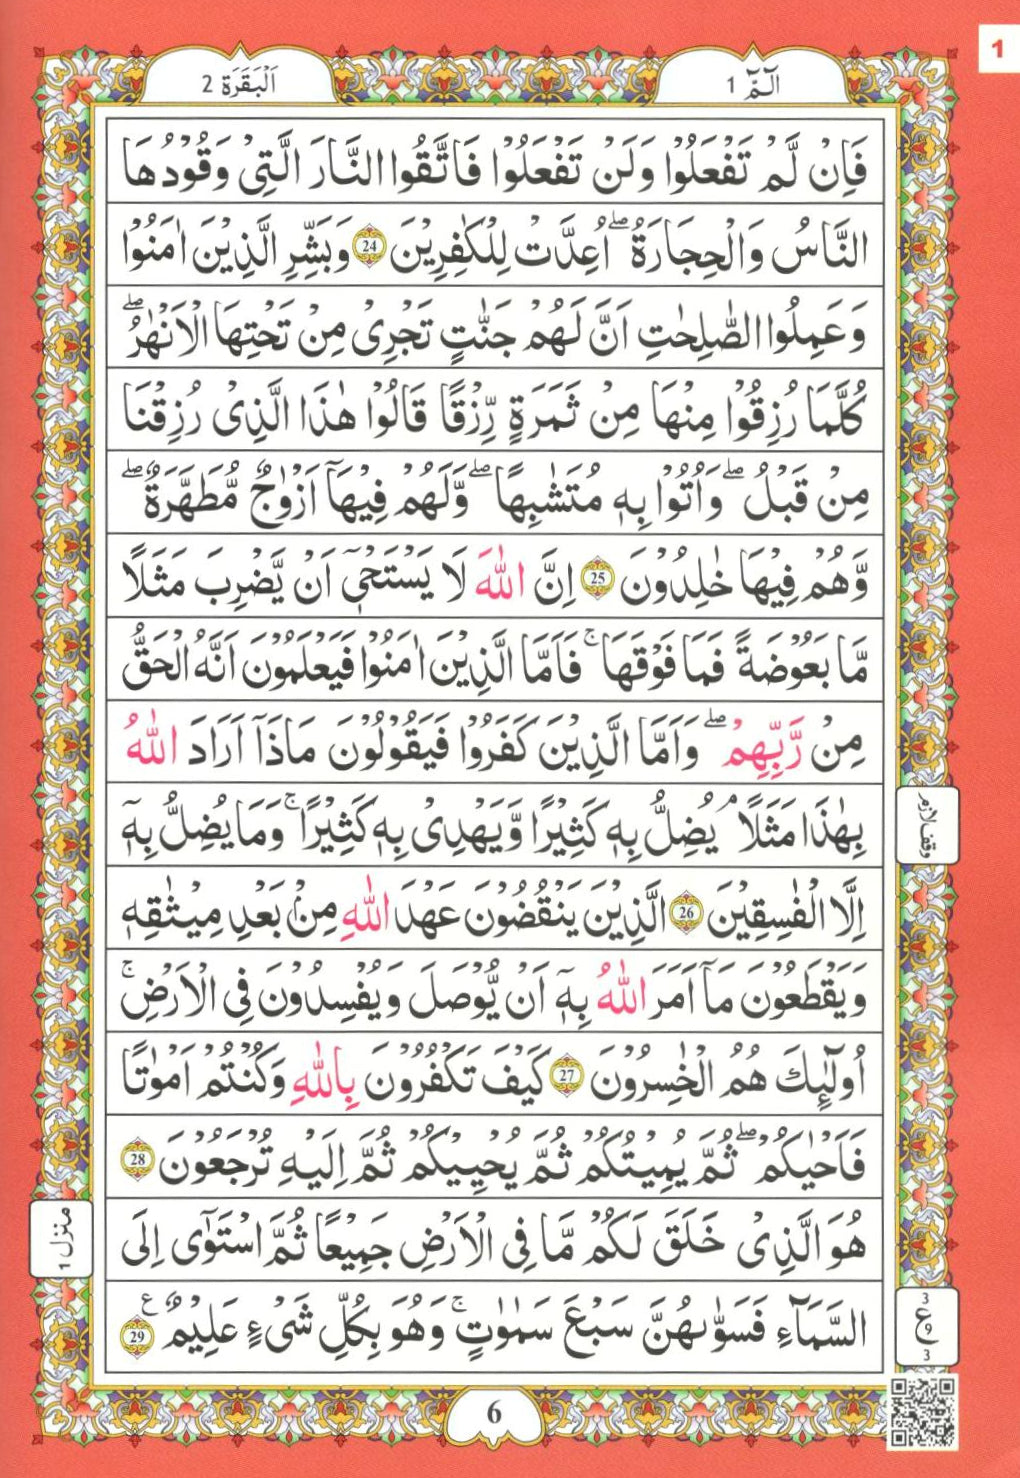 1
الٓمّٓ 1
اَلْبَقَرَة 2
فَاِنْ لَّمْ تَفْعَلُوْا وَلَنْ تَفْعَلُوْا فَاتَّقُوا النَّارَ الَّتِیْ وَقُوْدُهَا
النَّاسُ وَالْحِجَارَةُ ۖ اُعِدَّتْ لِلْكٰفِرِیْنَ 24 وَبَشِّرِ الَّذِیْنَ اٰمَنُوْا
وَعَمِلُوا الصّٰلِحٰتِ اَنَّ لَهُمْ جَنّٰتٍ تَجْرِیْ مِنْ تَحْتِهَا الْاَنْهٰرُ ۖ
كُلَّمَا رُزِقُوْا مِنْهَا مِنْ ثَمَرَةٍ رِّزْقًا قَالُوْا هٰذَا الَّذِیْ رُزِقْنَا
مِنْ قَبْلُ ۖ وَاُتُوْا بِهٖ مُتَشٰبِهًا ۖ وَّلَهُمْ فِیْهَاۤ اَزْوٰجٌ مُّطَهَّرَةٌ ۖ
وَّهُمْ فِیْهَا خٰلِدُوْنَ 25 اِنَّ اللّٰهَ لَا یَسْتَحْیٖۤ اَنْ یَّضْرِبَ مَثَلًا
مَّا بَعُوْضَةً فَمَا فَوْقَهَا ۚ فَاَمَّا الَّذِیْنَ اٰمَنُوْا فَیَعْلَمُوْنَ اَنَّهُ الْحَقُّ
مِنْ رَّبِّهِمْ ۖ وَاَمَّا الَّذِیْنَ كَفَرُوْا فَیَقُوْلُوْنَ مَاذَاۤ اَرَادَ اللّٰهُ
بِهٰذَا مَثَلًا ۘ یُضِلُّ بِهٖ كَثِیْرًا وَّیَهْدِیْ بِهٖ كَثِیْرًا ۚ وَمَا یُضِلُّ بِهٖۤ
اِلَّا الْفٰسِقِیْنَ 26 الَّذِیْنَ یَنْقُضُوْنَ عَهْدَ اللّٰهِ مِنْۢ بَعْدِ مِیْثٰقِهٖ
وَیَقْطَعُوْنَ مَاۤ اَمَرَ اللّٰهُ بِهٖۤ اَنْ یُّوْصَلَ وَیُفْسِدُوْنَ فِی الْاَرْضِ ۚ
اُولٰٓئِكَ هُمُ الْخٰسِرُوْنَ 27 كَیْفَ تَكْفُرُوْنَ بِاللّٰهِ وَكُنْتُمْ اَمْوٰتًا
فَاَحْیٰكُمْ ۖ ثُمَّ یُمِیْتُكُمْ ثُمَّ یُحْیِیْكُمْ ثُمَّ اِلَیْهِ تُرْجَعُوْنَ 28
هُوَ الَّذِیْ خَلَقَ لَكُمْ مَّا فِی الْاَرْضِ جَمِیْعًا ثُمَّ اسْتَوٰۤی اِلَی
السَّمَآءِ فَسَوّٰىهُنَّ سَبْعَ سَمٰوٰتٍ ۚ وَهُوَ بِكُلِّ شَیْءٍ عَلِیْمٌ ع 29
وقف لازم
منزل 1
3
ع
9
3
6